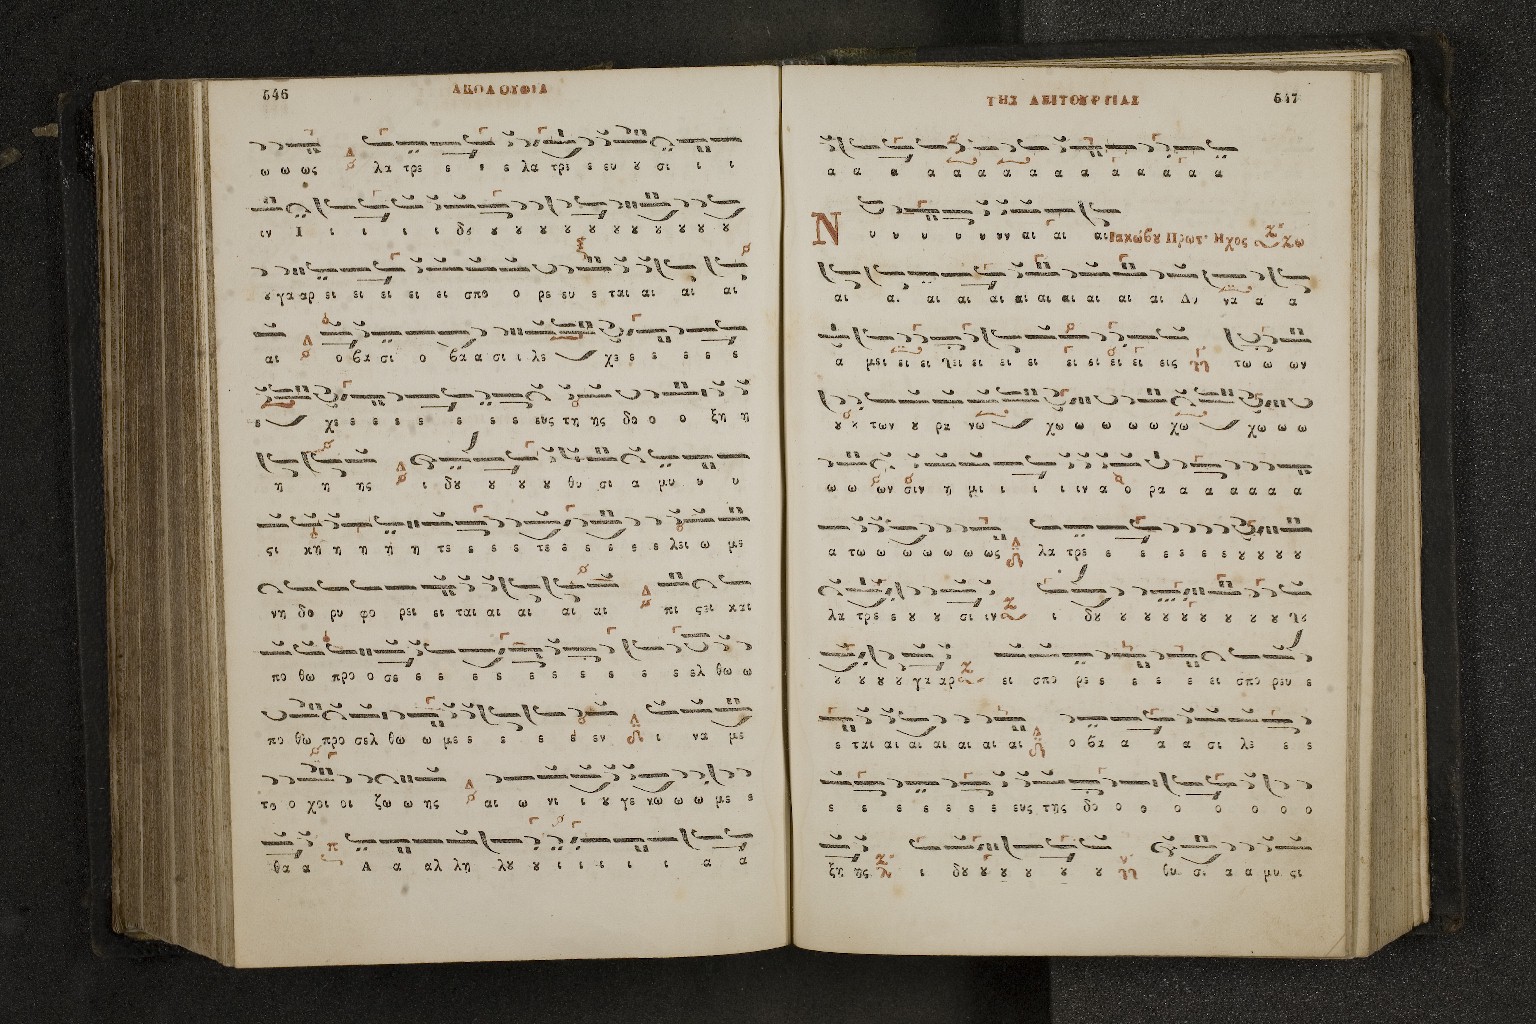 546
ΑΚΟΛΟΥΘΙΑ
ω ω ως λα τρε ε ε ε λα τρε ε ευ ȣ σι ι ι
ιν Ι ι ι ι ι δȣ ȣ ȣ ȣ ȣ ȣ ȣ ȣ ȣ ȣ ȣ
ȣ γα αρ ει ει ει ει ει σπο ο ρε ευ ε ται αι αι αι
αι ο βα σι ο βα α σι ι λε χε ε ε ε ε ε
ε χε ε ε ε ε ε ε ε ευς τη ης δο ο ο ξη η
η η ης ι δȣ ȣ ȣ ȣ θυ σι α μυ υ υ
ςι κη η η ή η τε ε ε ε τε ε ε ε ε ε λει ω με
νη δο ρυ φο ρει ει ται αι αι αι αι πι ςει και
πο θω προ ο σε ε ε ε ε ε ε ε ε ε ε ε ελ θω ω
πο θω προ σελ θω ω με ε ε ε ε έ εν ι να με
το ο χοι οι ζω ω ης αι ω νι ι ȣ γε νω ω ω με ε
θα α Α α αλ λη λȣ ȣ ι ι ι ι ι α α
ΤΗΣ ΛΕΙΤΟΥΡΓΙΑΣ
547
α α α α α α α α α α α α α α α
Ν υ υ υ υ υν αι αι αι Ιακώβȣ Πρωτ· Ηχος
αι α. αι αι αι αι αι αι αι αι αι Δυ να α α
α μει ει ει μει ει ει ει ει ει ει εί εις τω ω ων
ȣ ȣ των ȣ ρα νω χω ω ω ω ω χω χω ω ω
ω ω ων σιν η μι ι ι ι ιν α ο ρα α α α α α α
α τω ω ω ω ω ω ω ως λα τρε ε ε ε ε ε ε ȣ ȣ ȣ ȣ
λα τρε ε ȣ ȣ σι ιν ι δȣ ȣ ȣ ȣ ȣ ȣ ȣ ȣ ȣ
ȣ ȣ ȣ ȣ γα αρ ει σπο ρε ε ε ε ε ει σπο ρευ ε
ε ται αι αι αι αι αι αι ο βα α α α σι λε ε ε
ε ε ε ε ε ε ε ευς της δο ο ο ο ο ο ο ο ο
ξη ης ι δȣ ȣ ȣ ȣ ȣ ȣ θυ σι α α μυ ςι